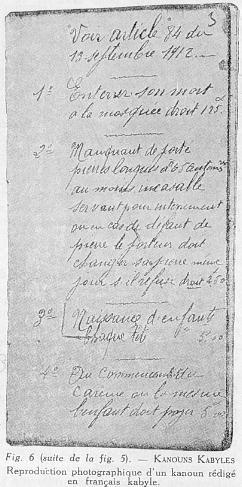 5
Voir article 84 du
13 septembre 1912
1º Enterrer son mort
a la mosquee droit 125
2º Manquant de porte
pierres longues de 65 centim
au moins incapable
servant pour enterement
ou en cas de défaut de
pierre le porteur doit
changer sa pierre meme
jour s'il refuse droit 2.50
3º Naissance d'enfants
chaque tête 5.00
4º Au commencement
careme ou la mesure
l'enfant doit payer 5.00
Fig. 6 (suite de la fig. 5). — KANOUNS KABYLES
Reproduction photographique d'un kanoun rédigé
en français kabyle.